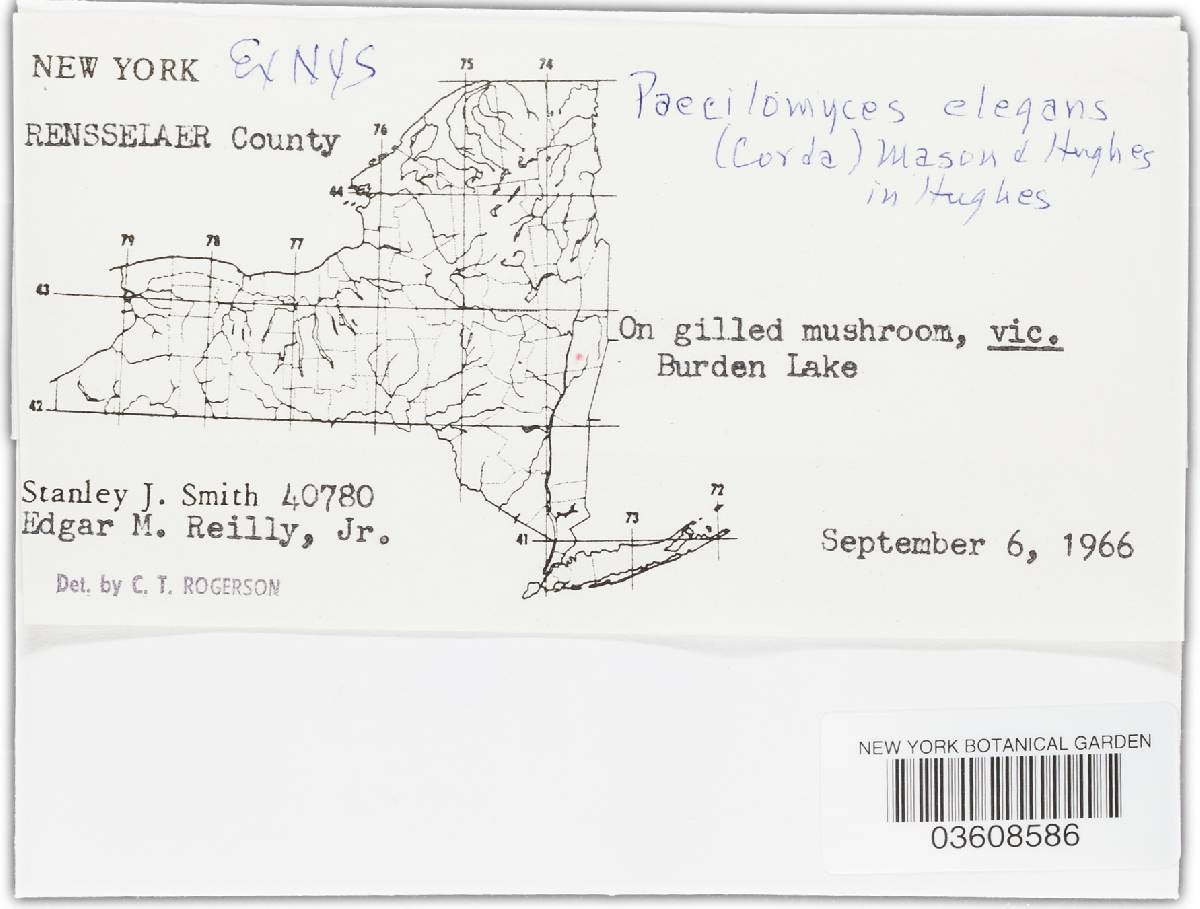 NEW YORK Ex NYS
RENSSELAER County
Paecilomyces elegans
(Corda) Mason & Hughes
in Hughes
75 74
76
44
79 78 77
43
42
On gilled mushroom, vic.
Burden Lake
Stanley J. Smith 40780
Edgar M. Reilly, Jr.
72
73
41
September 6, 1966
Det. by C. T. ROGERSON
NEW YORK BOTANICAL GARDEN
03608586